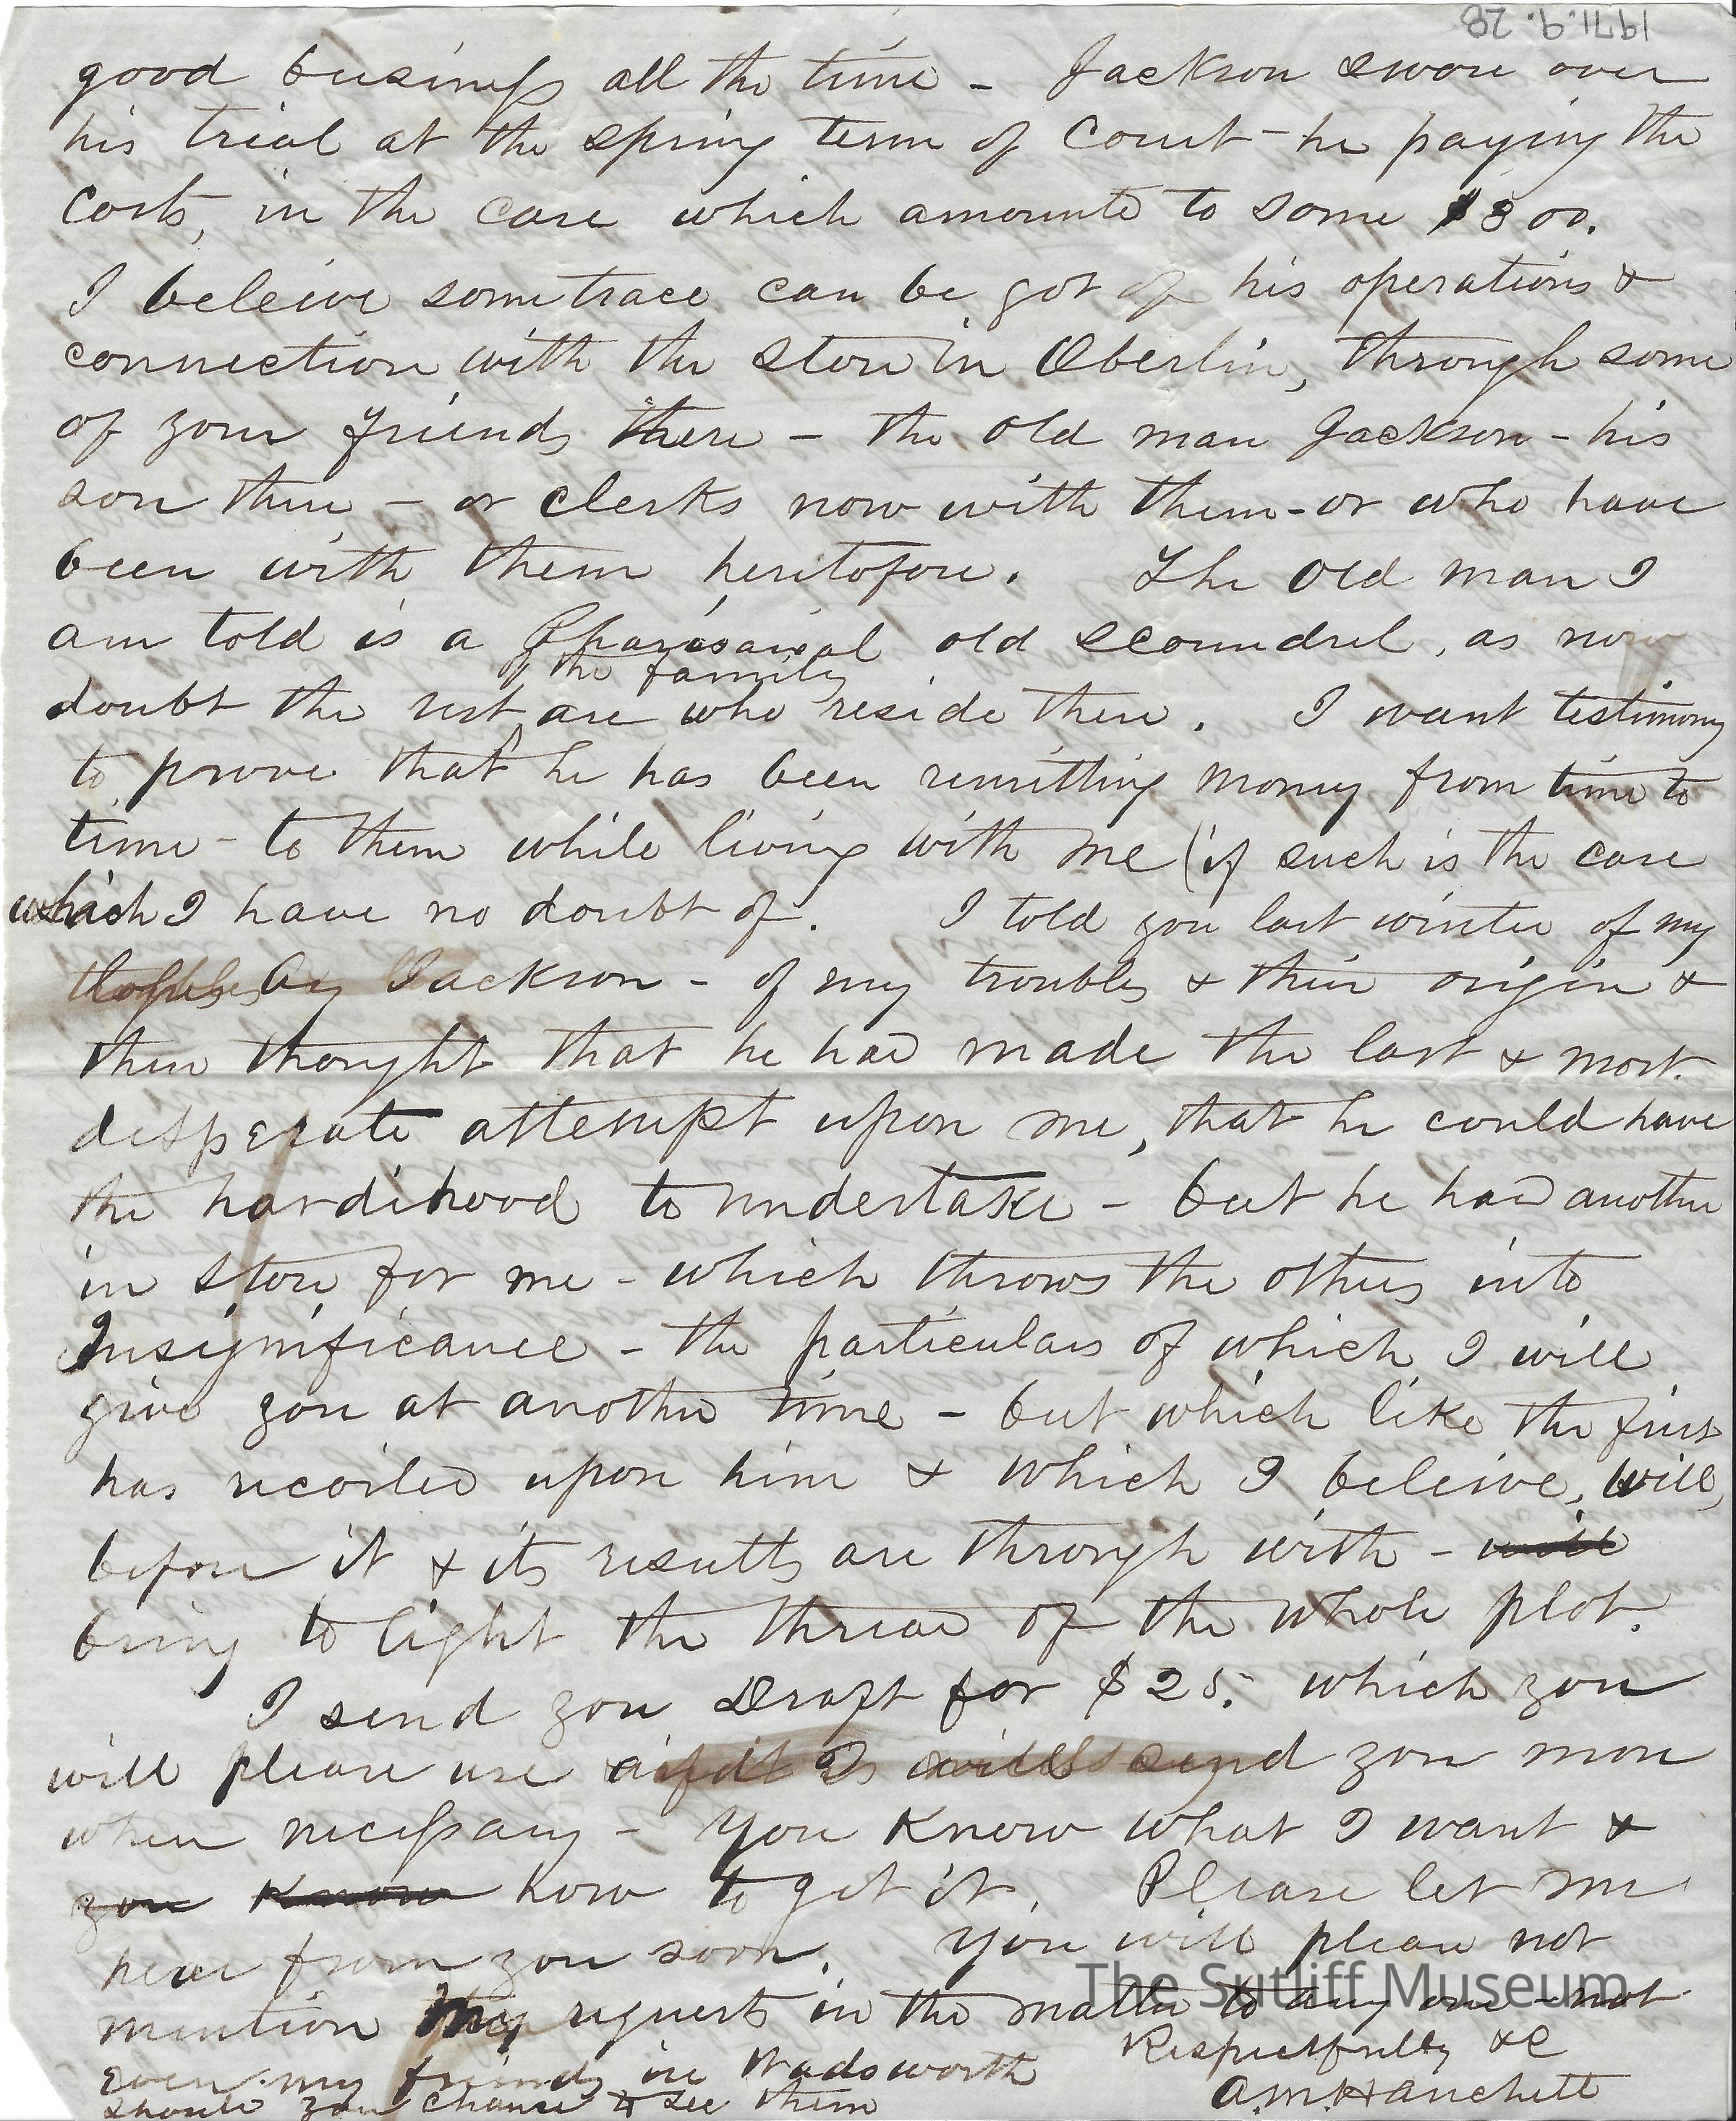 1971.9.28
good business all the time - Jackson swore over
his trial at the spring term of Court - he paying the
Costs, in the case which amounts to some $300.
I beleive some trace can be got of his operations &
connection with the store in Oberlin, through some
of your friends there - the old man Jackson - his
son there - or clerks now with them - or who have
been with them heretofore. The Old man I
am told is a Pharasaical old scoundrel, as now
of the family
doubt the rest are who reside there. I want testimony
to prove that he has been remitting money from time to
time - to them while living with me (if such is the case
which I have no doubt of. I told you last winter of my
by Jackson - of my troubles & their origin &
then thought that he had made the last & most
desperate attempt upon me, that he could have
the hardihood to undertake - but he had another
in store for me - which throws the others into
Insignificance - the particulars of which I will
give you at another time - but which like the first
has recoiled upon him & which I beleive, will,
before it & its results are through with - will
bring to light the thread of the whole plot.
I send you Draft for $25. which you
will please use & I will send you more
when necessary - You know what I want &
you know how to get it. Please let me
hear from you soon. You will please not
mention my request in the matter to any one - not
even my friends in Wadsworth
should you chance to see them
Respectfully &c
A.M. Hanchett
The Sutliff Museum